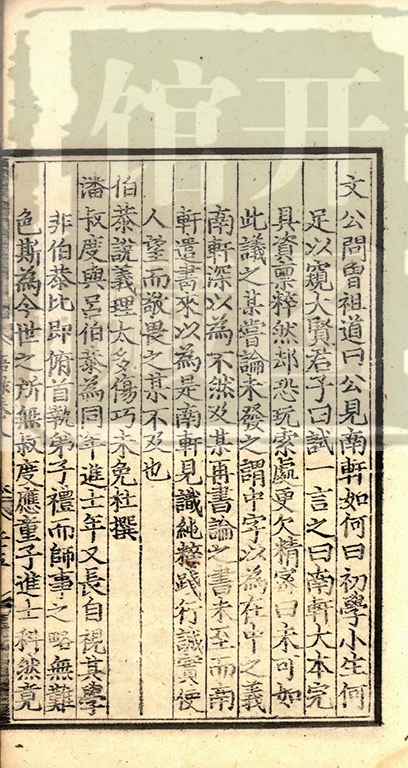 文公問曾祖道曰公見南軒如何曰初學小生何
足以窺大賢君子曰試一言之曰南軒大本完
具資稟粹然却恐玩索處更欠精密曰未可如
此議之某嘗論未發之謂中字以為在中之義
南軒深以為不然及某再書論之書未至而南
軒遣書來以為是南軒見識純粹踐行誠實使
人望而敬畏之某不及也
伯恭說義理太多傷巧未免杜撰
潘叔度與呂伯恭為同年進士年又長自視其學
非伯恭比即俯首執弟子禮而師事之略無難
色斯為今世之所無叔度應童子進士科然竟